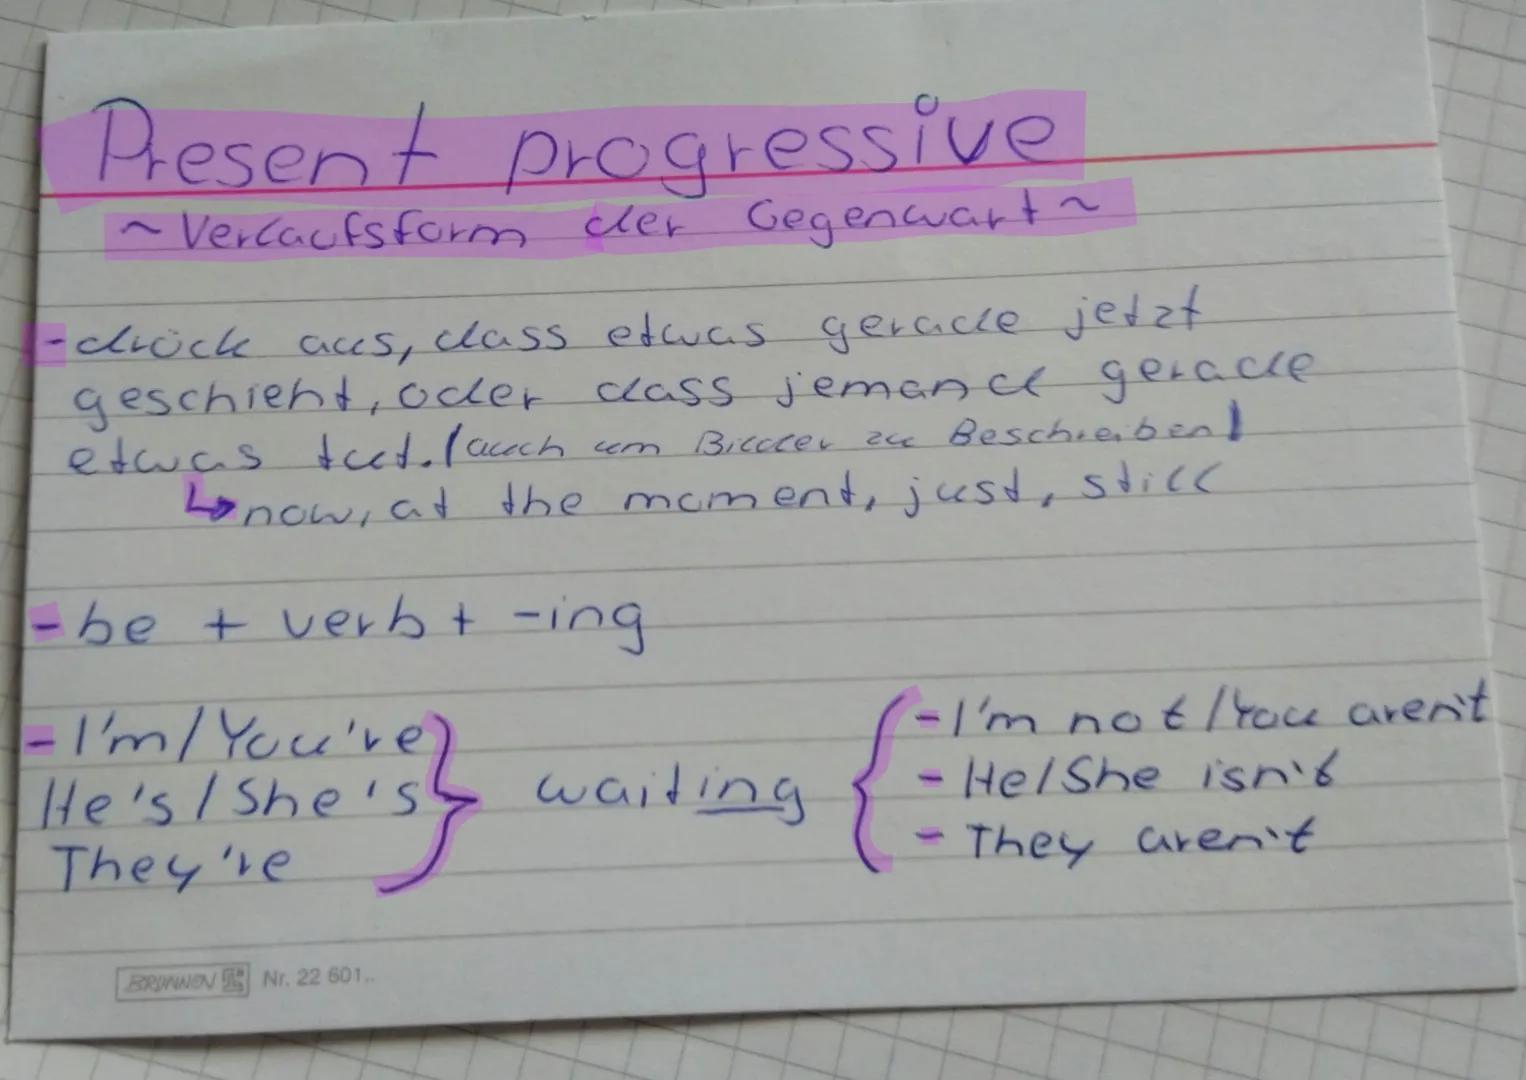 Present progressive
~Verlaufsform der Gegenwart~
-drück aus, dass etwas gerade jetzt
geschieht, oder dass jemand gerade
etwas tut. (auch um Bilder zu Beschreiben)
↳now, at the moment, just, still
-be + verb + -ing
-I'm/You're
He's/She's
They're
waiting
-I'm not/You aren't
-He/She isn't
-They aren't
BRUNNEN Nr. 22 601..